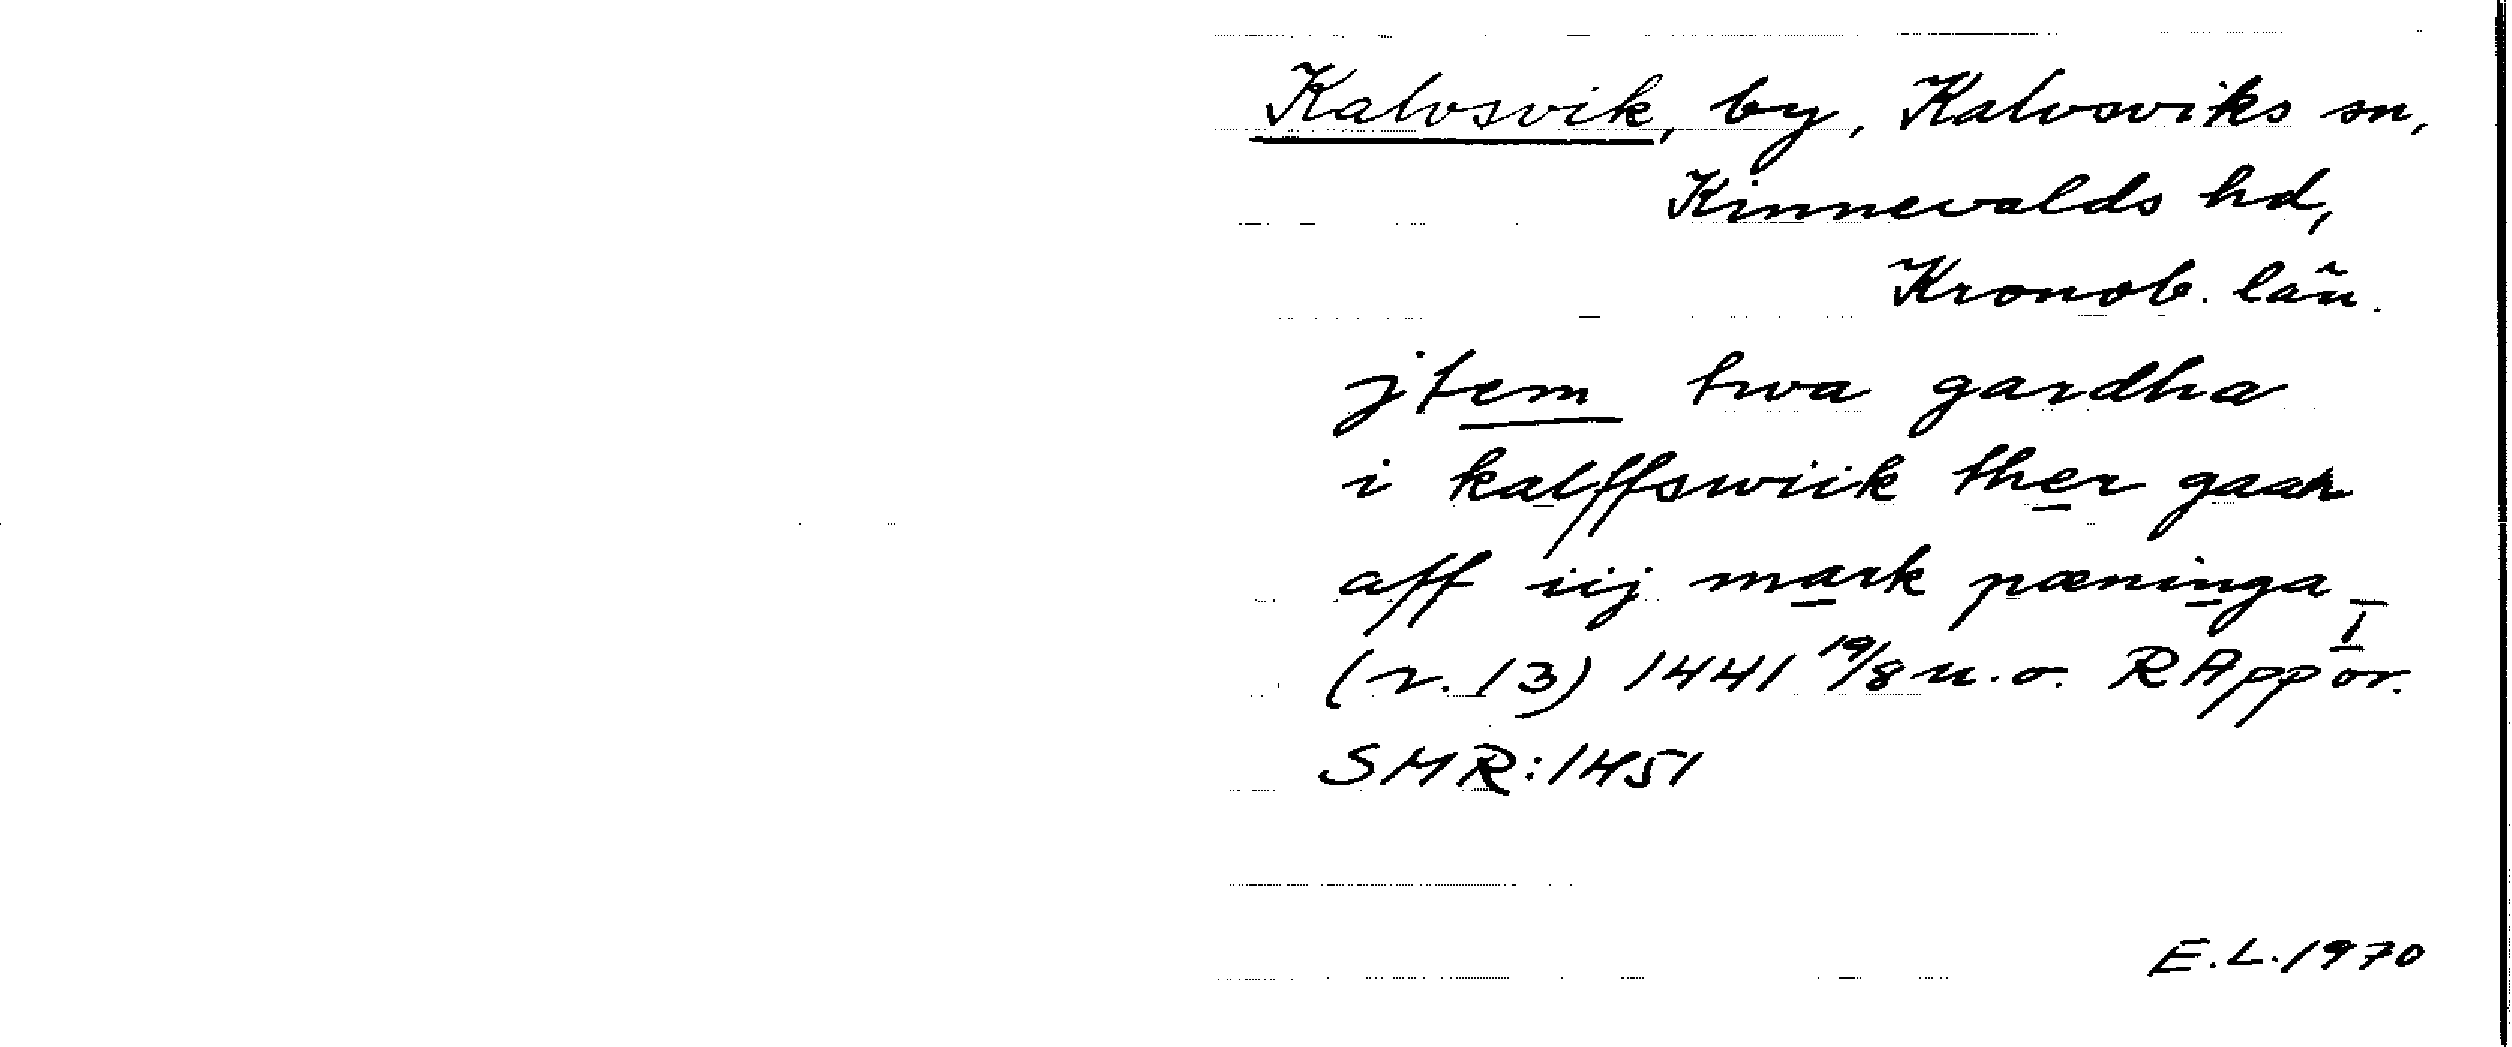 Kalvsvik, by, Kalvsviks sn,
Kinnevalds hd,
Kronob. län.
jtem twa gardha
i kalffswiik ther gaar
aff iij mark pæninga
I
(r. 13) 1441 19/8 u.o. RApp or.
SMR:1451
E.L.1970